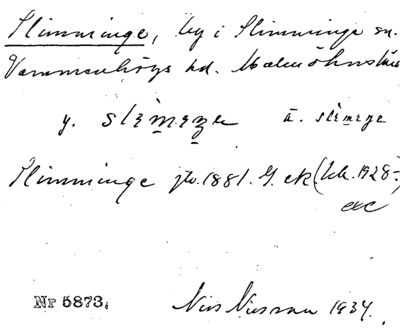 Slimminge, by i Slimminge sn.
Vemmenhögs hd. Malmöhus län
y. slìmeŋe ä. slìmeŋe
Slimminge jto. 1881. G. ek. (tck. 1928-
Nr 5873. Nils Nilsson 1934.